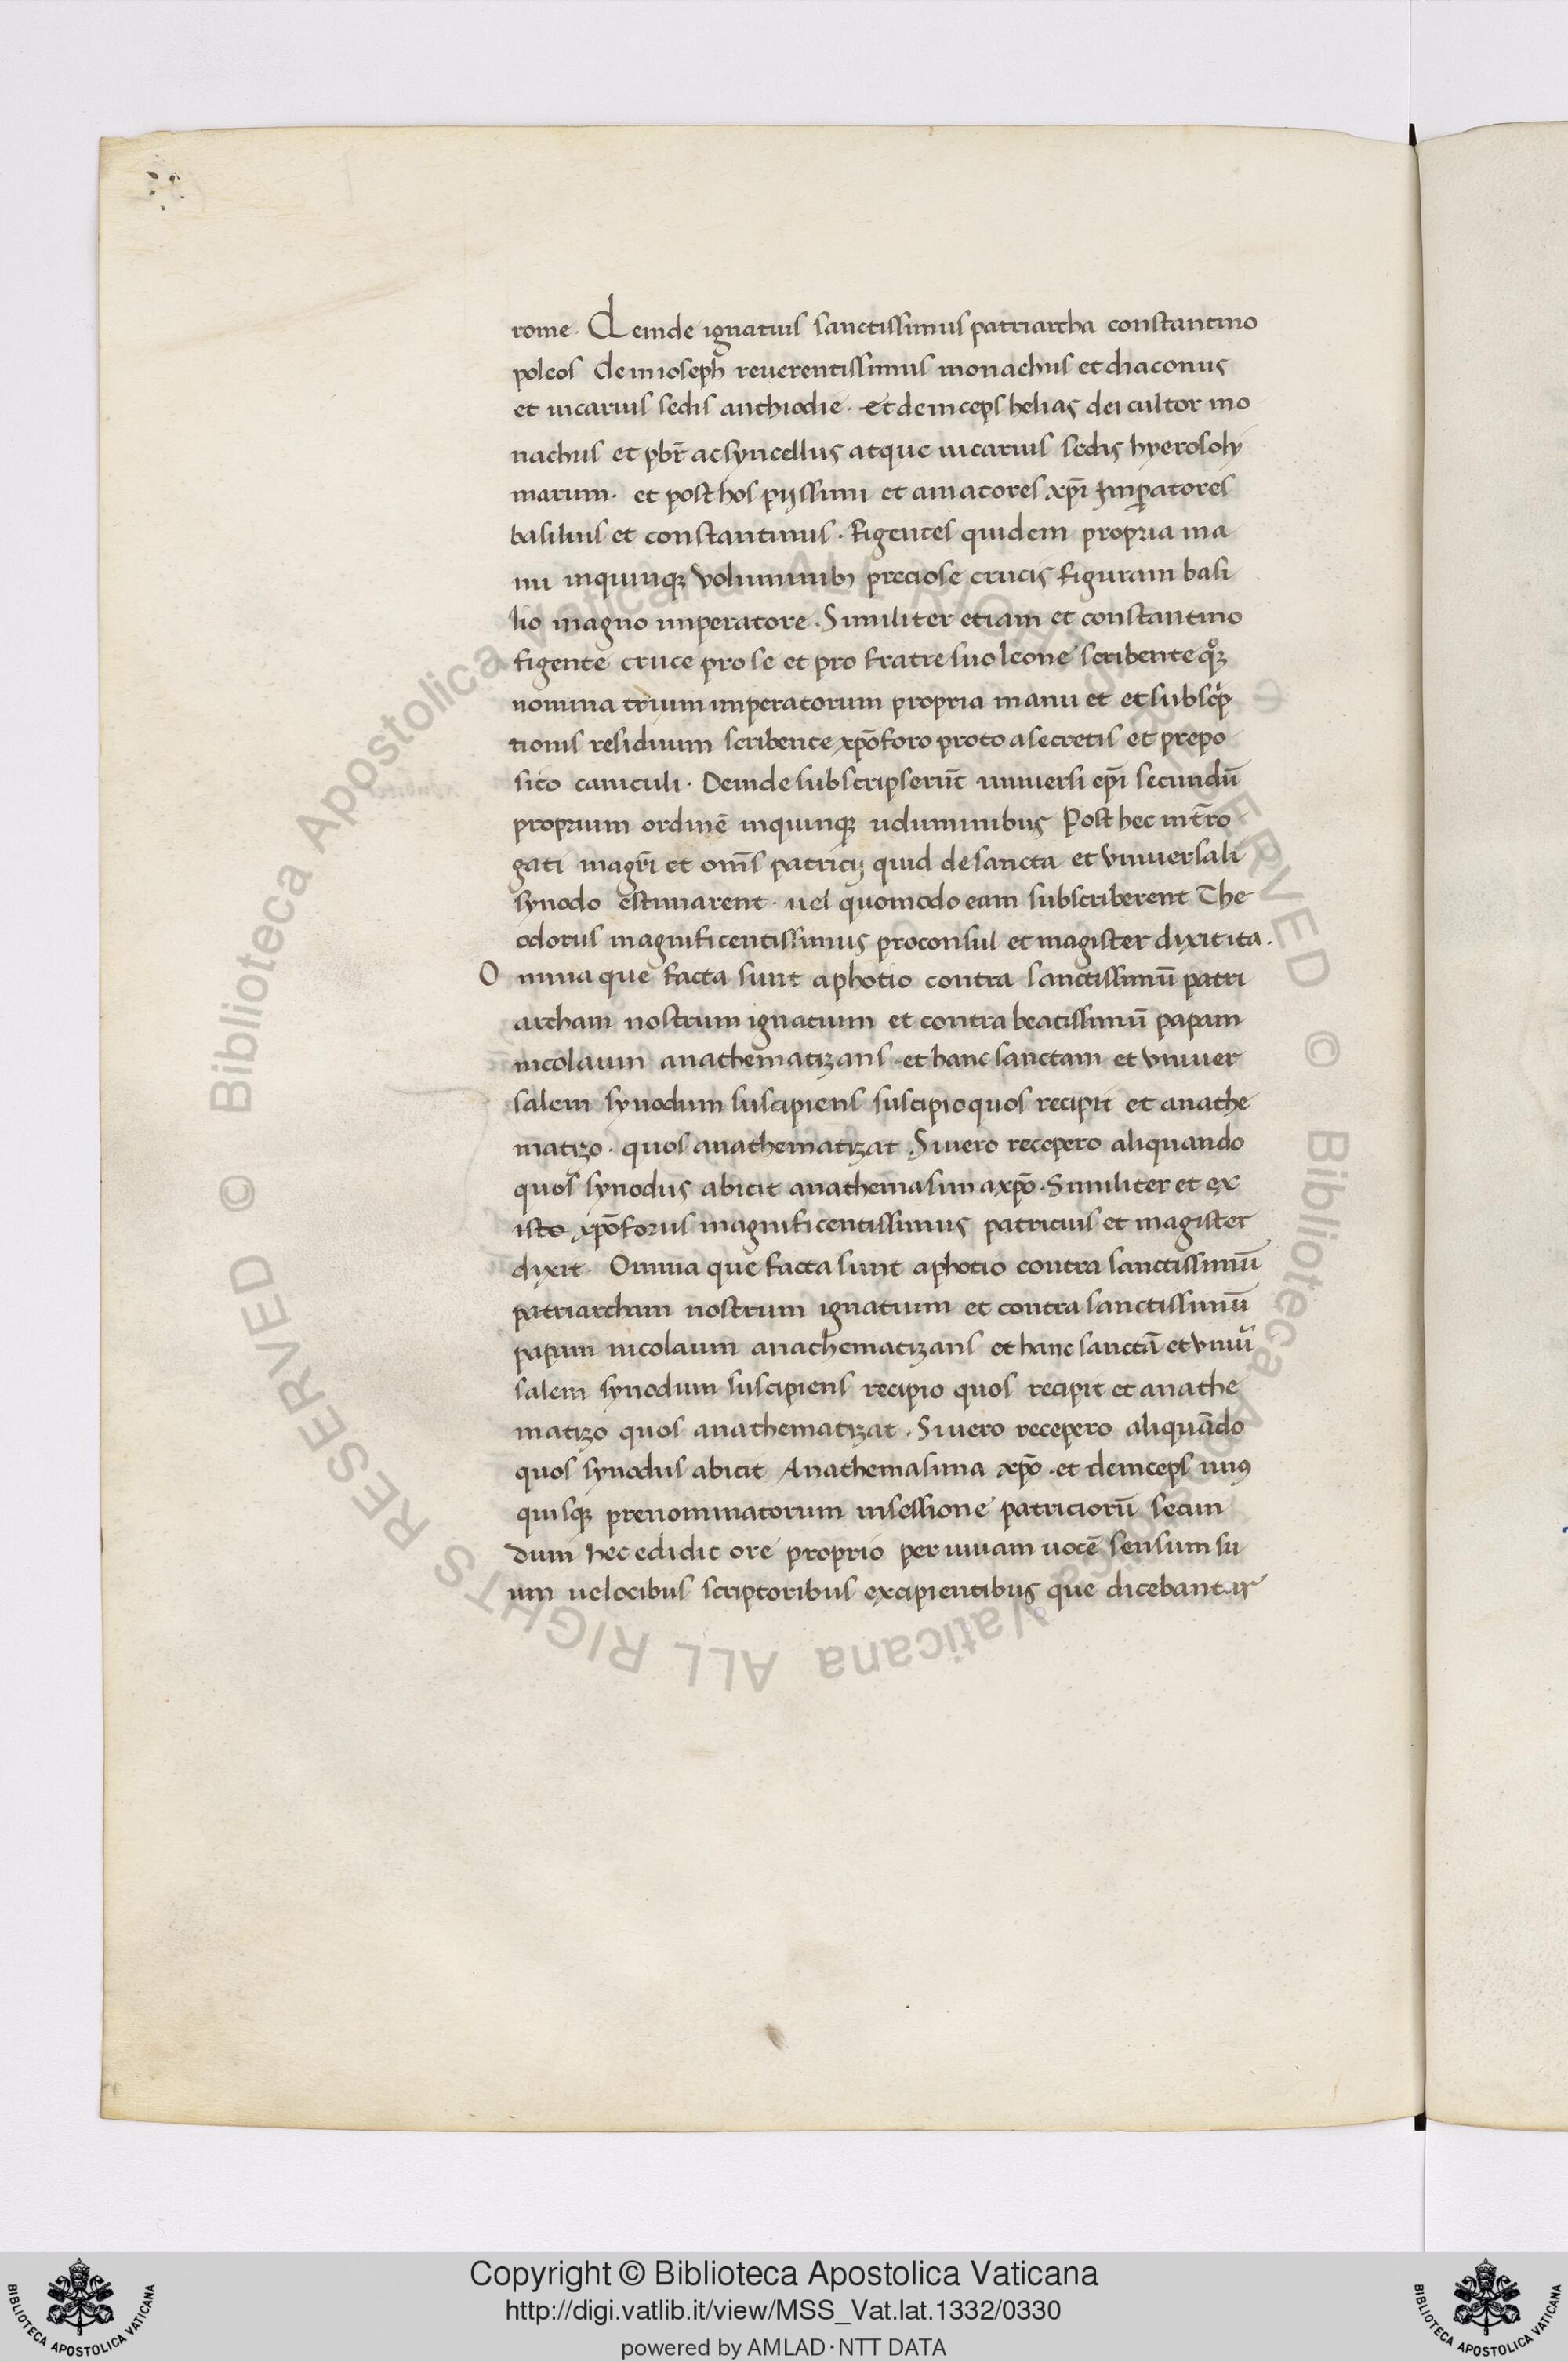 rome. Deinde ignatius sanctissimus patriarcha constantino
poleos Dein ioseph reuerentissimus monachus et diaconus
et uicarius sedis anthiochie. et deinceps helias dei cultor mo
nachus et pbr̄ ac syncellus atque uicarius sedis hyerosoly
marum. et post hos pijssimi et amatores xp̄i Imꝑatores
basilius et constantinus. figentes quidem propria ma
nu in quinqꝫ voluminibꝫ preciose crucis figuram basi
lio magno imperatore. Similiter etiam et constantino
figente cruce pro se et pro fratre suo leone scribente qͦꝫ
nomina trium imperatorum propria manu et et subscͥp
tionis residuum scribente xp̄oforo proto a secretis et prepo
sito caniculi. Deinde subscripserūt uniuersi ep̄i secundū
proprium ordinē in quinqꝫ uoluminibus Post hec int̄ro
gati magr̄i et om̄s patricij quid de sancta et vniuersali
synodo estimarent. uel quomodo eam subscriberent The
odorus magnificentissimus proconsul et magister dixit ita.
O mnia que facta sunt a photio contra sanctissimū patri
archam nostrum ignatium et contra beatissimū papam
nicolaum anathematizans. et hanc sanctam et vniuer
salem synodum suscipiens suscipio quos recipit et anathe
matizo. quos anathematizat. Si uero recepero aliquando
quos synodus abicit anathema sim a xp̄o. Similiter et ex
isto xp̄oforus magnificentissimus patricius et magister
dixit. Omnia que facta sunt a photio contra sanctissimū
patriarcham nostrum ignatium et contra sanctissimū
papam nicolaum anathematizans et hanc sanctā et vniū
salem synodum suscipiens recipio quos recipit et anathe
matizo quos anathematizat. Si uero recepero aliquādo
quos synodus abicit Anathema sim a xp̄o. et deinceps unꝰ
quisqꝫ prenominatorum in sessione patriciorū secun
dum hec edidit ore proprio per uiuam uocē sensum su
um uelocibus scriptoribus excipientibus que dicebantur
Copyright © Biblioteca Apostolica Vaticana
http://digi.vatlib.it/view/MSS_Vat.lat.1332/0330
powered by AMLAD·NTT DATA
BIBLIOTECA APOSTOLICA VATICANA
BIBLIOTECA APOSTOLICA VATICANA
© Biblioteca Apostolica Vaticana ALL RIGHTS RESERVED © Biblioteca Apostolica Vaticana ALL RIGHTS RESERVED